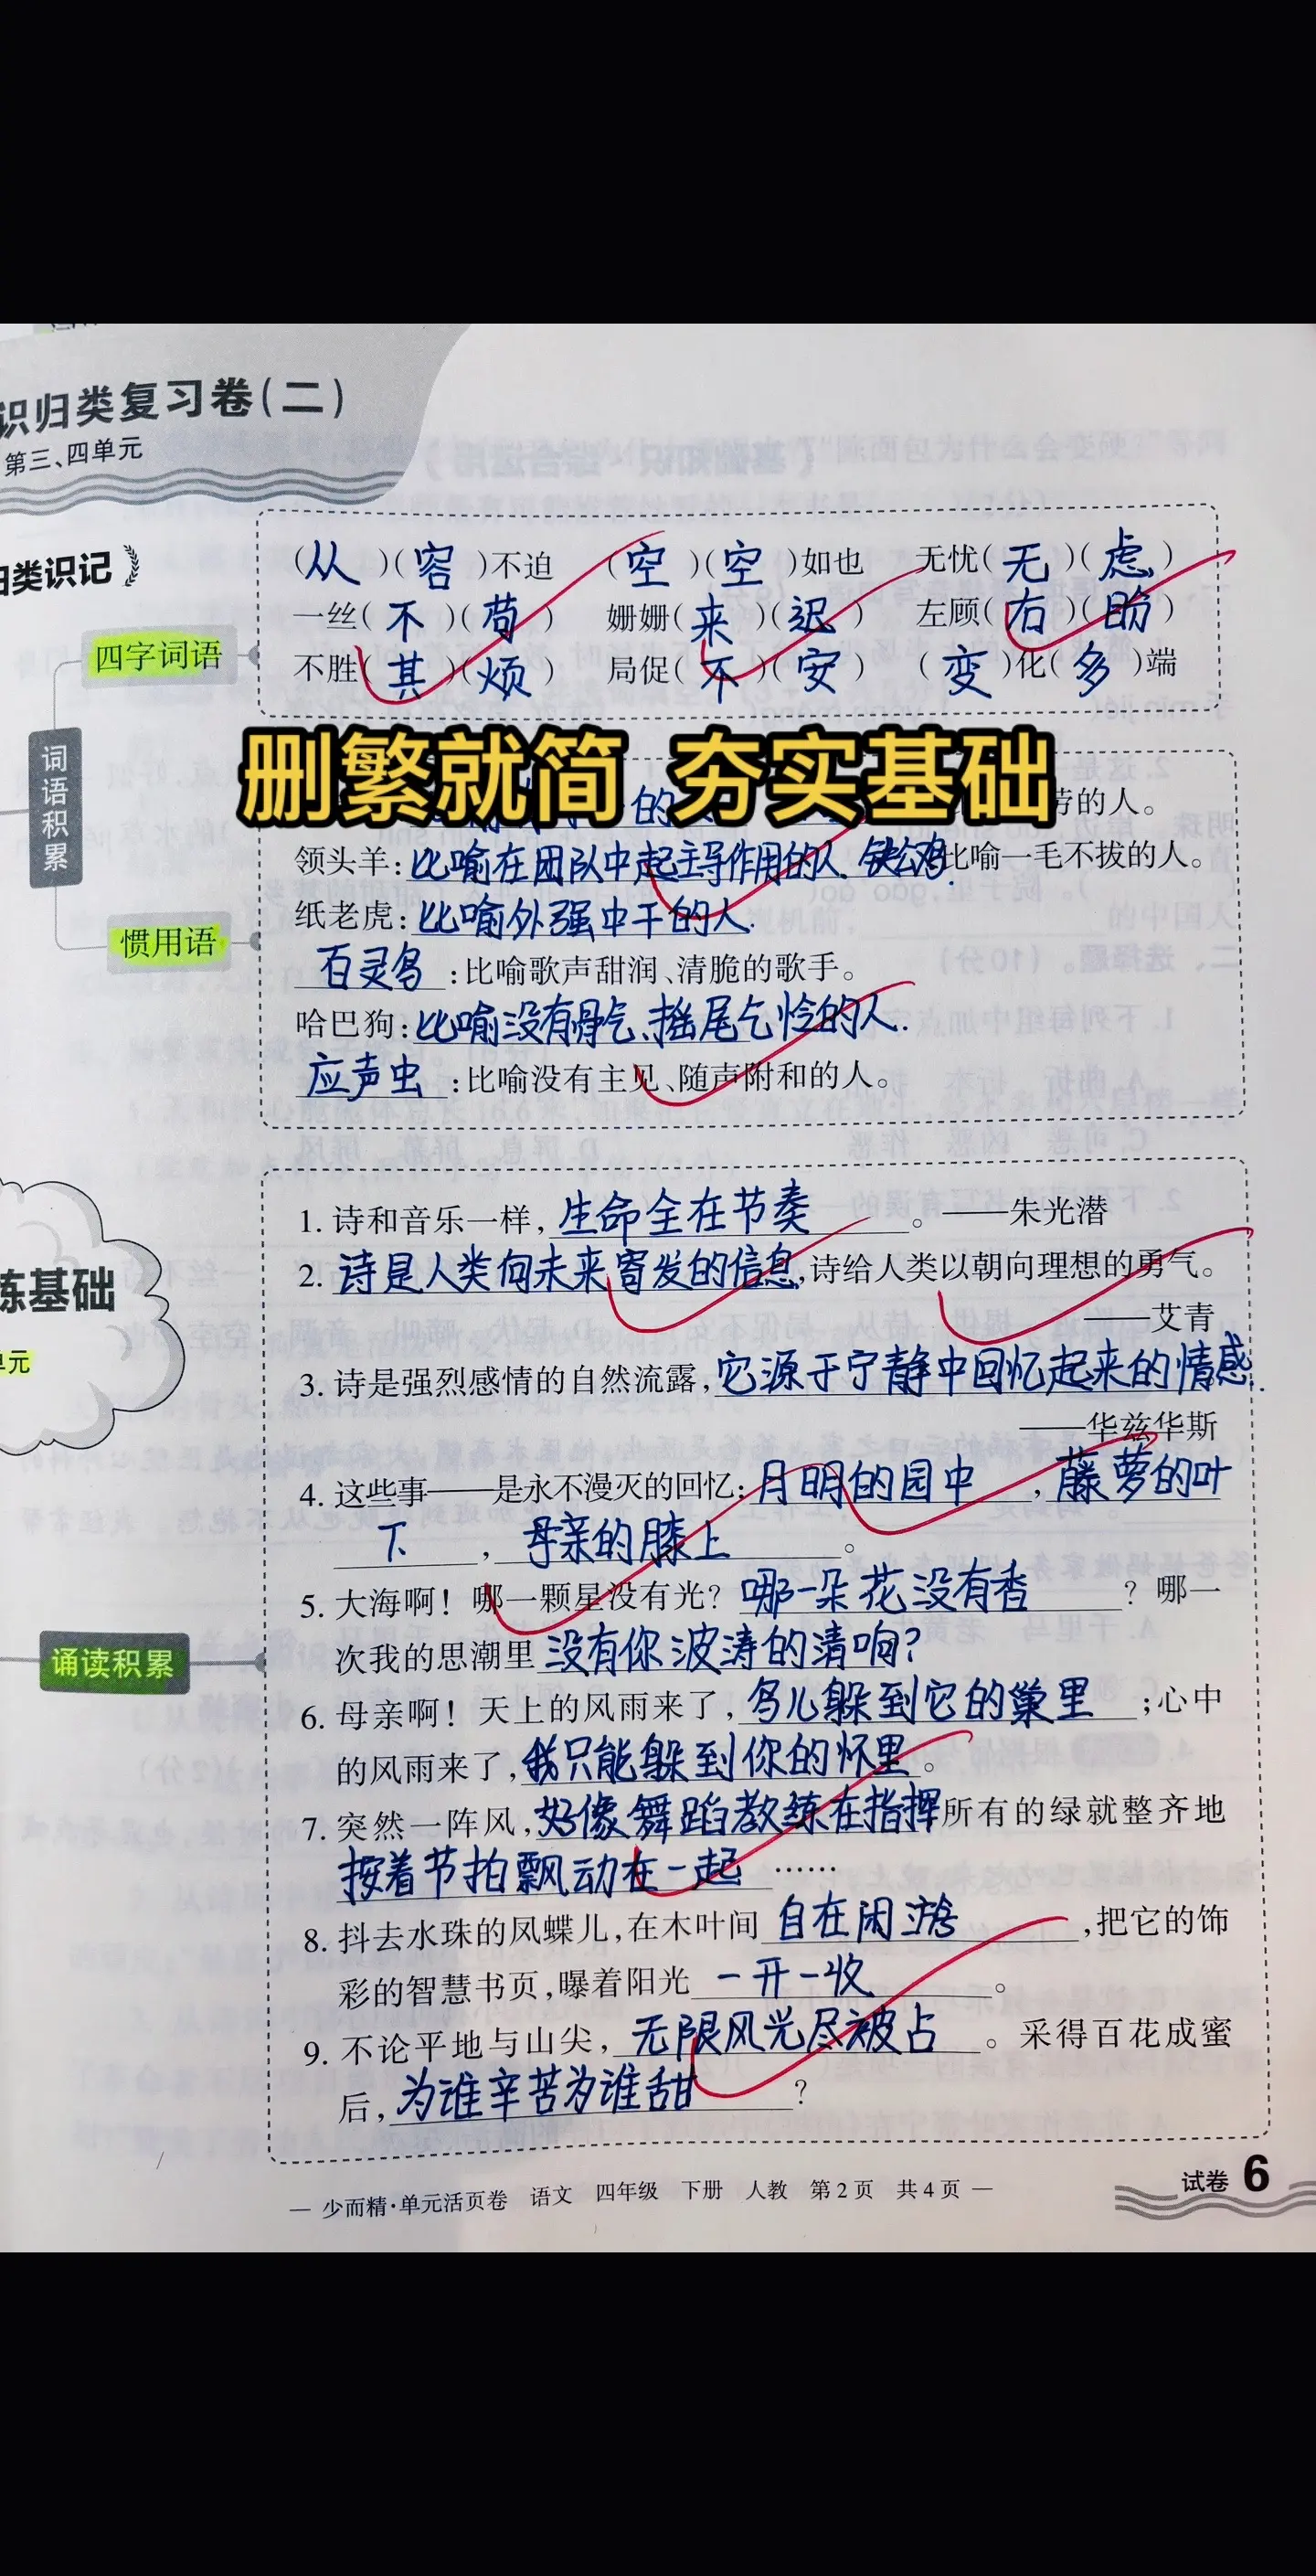 识归类复习卷(二)
第三、四单元
归类识记
四字词语
(从)(容)不迫 (空)(空)如也 无忧(无)(虑)
一丝(不)(苟) 姗姗(来)(迟) 左顾(右)(盼)
不胜(其)(烦) 局促(不)(安) (变)化(多)端
词语积累
删繁就简 夯实基础
的人。
领头羊:比喻在团队中起主导作用的人. 铁公鸡:比喻一毛不拔的人。
纸老虎:比喻外强中干的人.
惯用语
百灵鸟:比喻歌声甜润、清脆的歌手。
哈巴狗:比喻没有骨气、摇尾乞怜的人.
应声虫:比喻没有主见、随声附和的人。
1. 诗和音乐一样,生命全在节奏。——朱光潜
2. 诗是人类向未来寄发的信息,诗给人类以朝向理想的勇气。
——艾青
练基础
单元
3. 诗是强烈感情的自然流露,它源于宁静中回忆起来的情感.
——华兹华斯
4. 这些事——是永不漫灭的回忆:月明的园中,藤萝的叶
下,母亲的膝上。
5. 大海啊!哪一颗星没有光?哪一朵花没有香?哪一
次我的思潮里没有你波涛的清响?
诵读积累
6. 母亲啊!天上的风雨来了,鸟儿躲到它的巢里;心中
的风雨来了,我只能躲到你的怀里。
7. 突然一阵风,好像舞蹈教练在指挥所有的绿就整齐地
按着节拍飘动在一起……
8. 抖去水珠的凤蝶儿,在木叶间自在闲游,把它的饰
彩的智慧书页,曝着阳光一开一收。
9. 不论平地与山尖,无限风光尽被占。采得百花成蜜
后,为谁辛苦为谁甜?
— 少而精·单元活页卷 语文 四年级 下册 人教 第2页 共4页 —
试卷 6